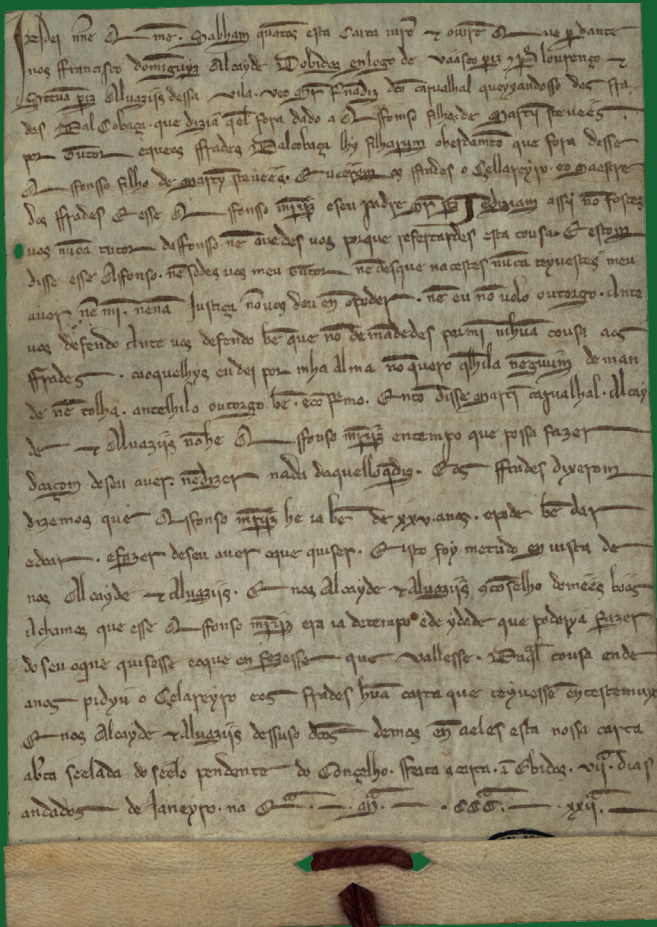 Dei nñe Amẽ. Sabham quãtos esta Carta virẽ & ouirẽ Que per dante
nos ffrancisco dominguiz Alcayde Dobidos en logo de vaasco periz & lourenço
Steuã periz Aluaziis dessa vila. dcõ carualhal queyxandosse dos fra
des Dal Cobaça. que diziã q̃l fora dado a Affonso filho de Martĩ steuẽes
por Tutor e que os ffrades Dalcobaça lhy filharum o herdamẽto que fora desse
Affonso filho de Martỹ steuẽes. E os ffrades o Cellareyro. e o Maestre
dos ffrades E esse Affonso mr̃ĩz e seu padre diziam assi nõ fostes
uos nũca tutor daffonso. nẽ auedes uos porque refertardes esta cousa. E estom
disse esse Affonso. nẽ sodes uos meu Tutor nẽ desque nacestes nũca teyuestes meu
auer nẽ mi. nẽ na Justiça nõ uos deu en poder. nẽ eu nõ uolo outorgo. Ante
uos defendo Ante uos defendo bẽ que nõ demãdedes por mi nihũa cousa aos
ffrades. ca o que lhys eu dei por mha alma nõ quero q̃ lhila nẽguum deman
de nẽ tolha. ante lhilo outorgo bẽ. Entõ disse Martĩ carualhal. Alcay
de & Aluaziis nõ he Affonso mr̃ĩz en tempo que possa fazer
doaçom de seu auer. nẽ dizer nada daquello q̃ diz. E os ffrades dixerom
dizemos que Affonso mr̃ĩz he ia bẽ de xxv. anos. e pode bẽ dar
e doar. e fazer de seu auer o que quiser. E isto foy metudo en uista de
nos Alcayde & Aluaziis. E nos Alcayde & Aluaziis cõ cõselho domẽes bõos
achamos que esse Affonso mr̃ĩz era ia de tempo e de ydade que poderya fazer
do seu o que quisesse e o que en fezesse que vallesse. Da q̃l cousa ende
a nos pidyu o Celareyro e os frades hũa carta que teyuessẽ en testemuyo
E nos Alcayde & Aluaziis dessuso dcõs demos en a eles esta nossa carta
abta seelada do seelo pendente do Conçelho. ffeita a carta. ĩ Obidos. vijª. dias
andados de Janeyro. na Eª. Mª. CCCª. xxijª.